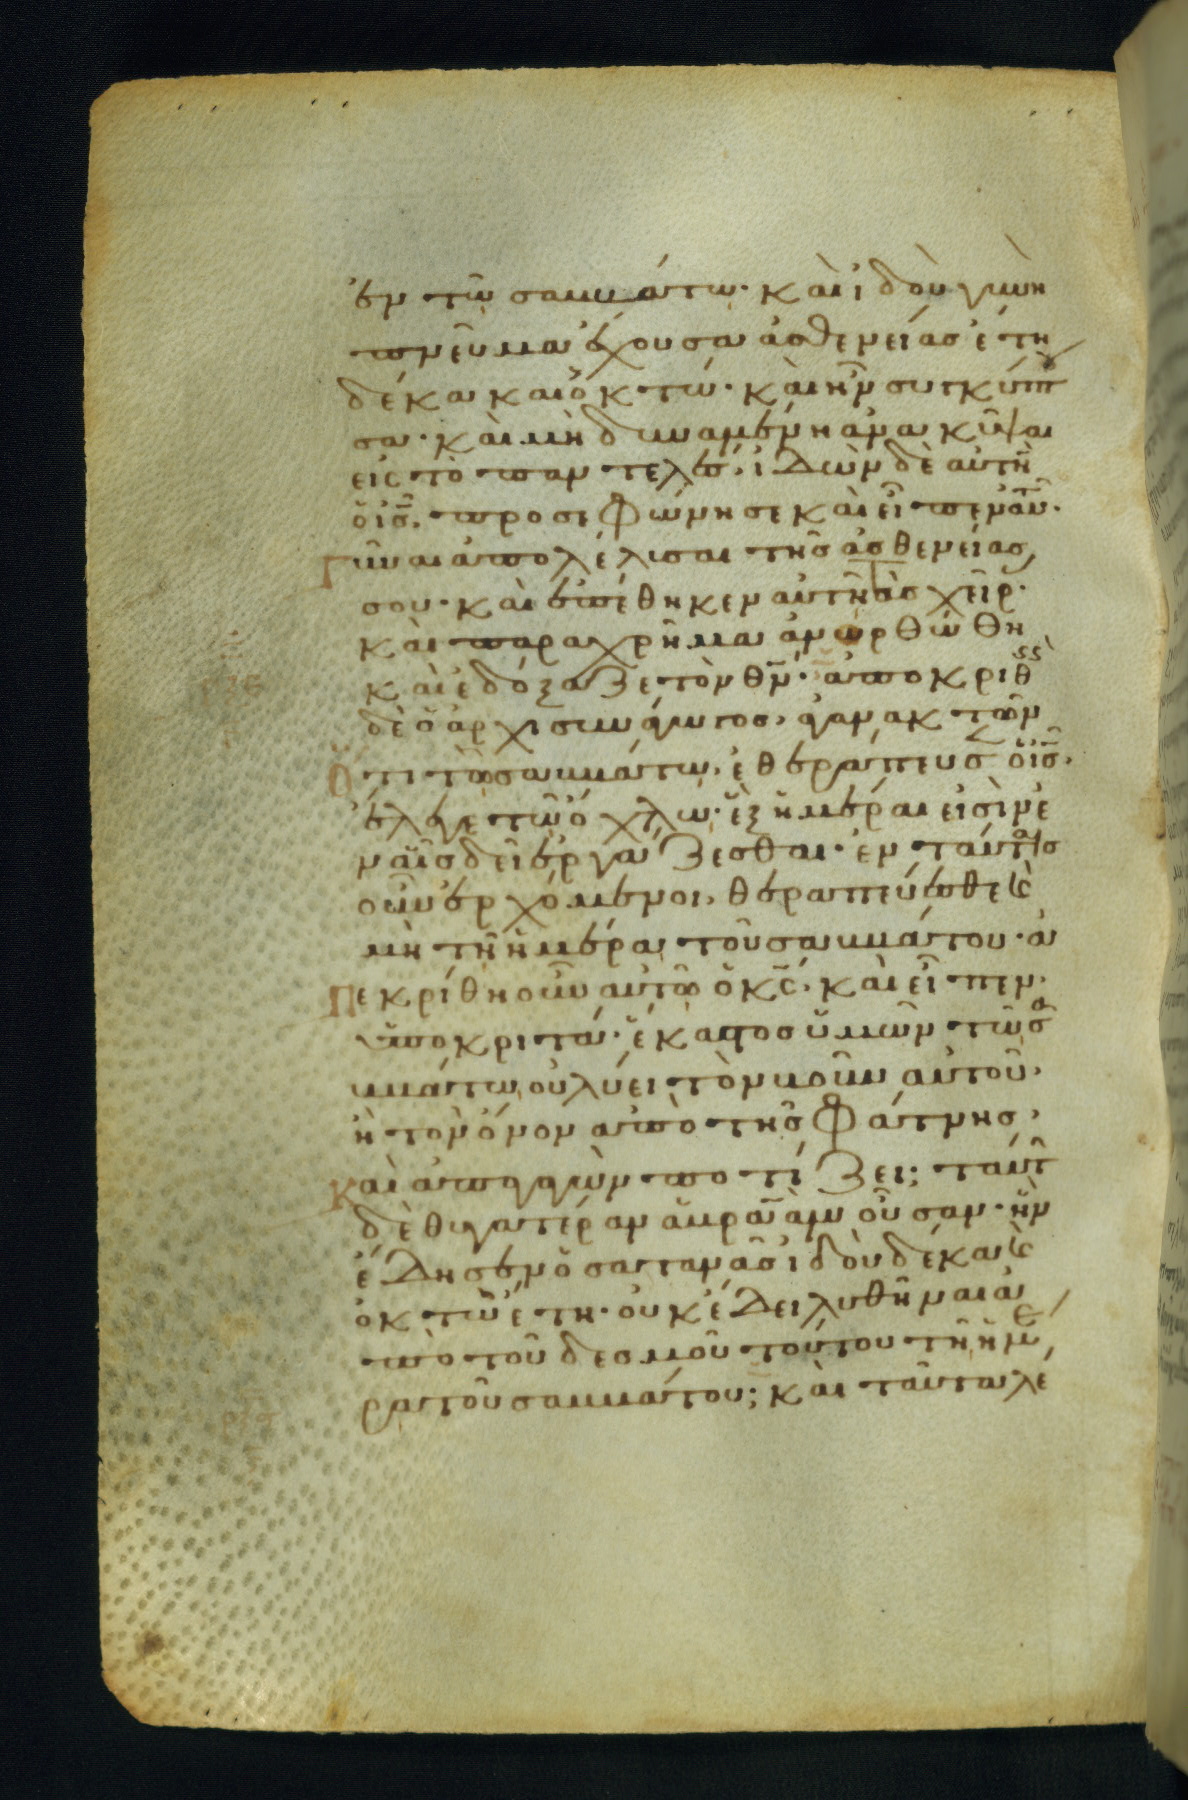 ἐν τῷ σαββάτω· καὶ ἰδοὺ γυνὴ
πνεῦμα ἔχουσα ἀσθενείας ἔτη
δέκα καὶ ὀκτώ· καὶ ἦν συγκύπτου
σα· καὶ μὴ δυναμένη ἀνακῦψαι
εἰς τὸ παντελές· ἰδὼν δὲ αὐτὴν
ὁ ις̅, προσεφώνησε καὶ εἶπεν αὐτῇ·
Γῦναι ἀπολέλυσαι τῆς ἀσθενείας
σου· καὶ ἐπέθηκεν αὐτῇ τὰς χεῖρ·
καὶ παραχρῆμα ἀνωρθώθη
καὶ ἐδόξαζε τὸν θν̅· ἀποκριθεὶς
δὲ ὁ ἀρχισυνάγωγος, ἀγανακτῶν
Ὅτι τῷ σαββάτω, ἐθεράπευσεν ὁ ις̅·
ἔλεγε τῷ ὄχλω· ἓξ ἡμέραι εἰσὶν ἐ
ν αἷς δεῖ ἐργάζεσθαι· ἐν ταύταις
οὖν ἐρχόμενοι, θεραπεύεσθε καὶ
μὴ τῇ ἡμέρα τοῦ σαββάτου· ἀ
Πεκρίθη οὖν αὐτῷ ὁ κς̅· καὶ εἶπεν·
ὑποκριτά· ἕκαστος ὑμῶν τῷ σα
ββάτω οὐ λύει τὸν βοῦν αὐτοῦ·
ἢ τὸν ὄνον ἀπὸ τῆς φάτνης,
Καὶ ἀπαγαγὼν ποτίζει; ταύτην
δὲ θυγατέραν ἀβραὰμ οὖσαν· ἣν
ἔδησεν ὁ σατανᾶς ἰδοὺ δέκα καὶ
ὀκτὼ ἔτη· οὐκ ἔδει λυθῆναι ἀ
πὸ τοῦ δεσμοῦ τούτου τῇ ἡμέ
ρα τοῦ σαββάτου; καὶ ταῦτα λέ